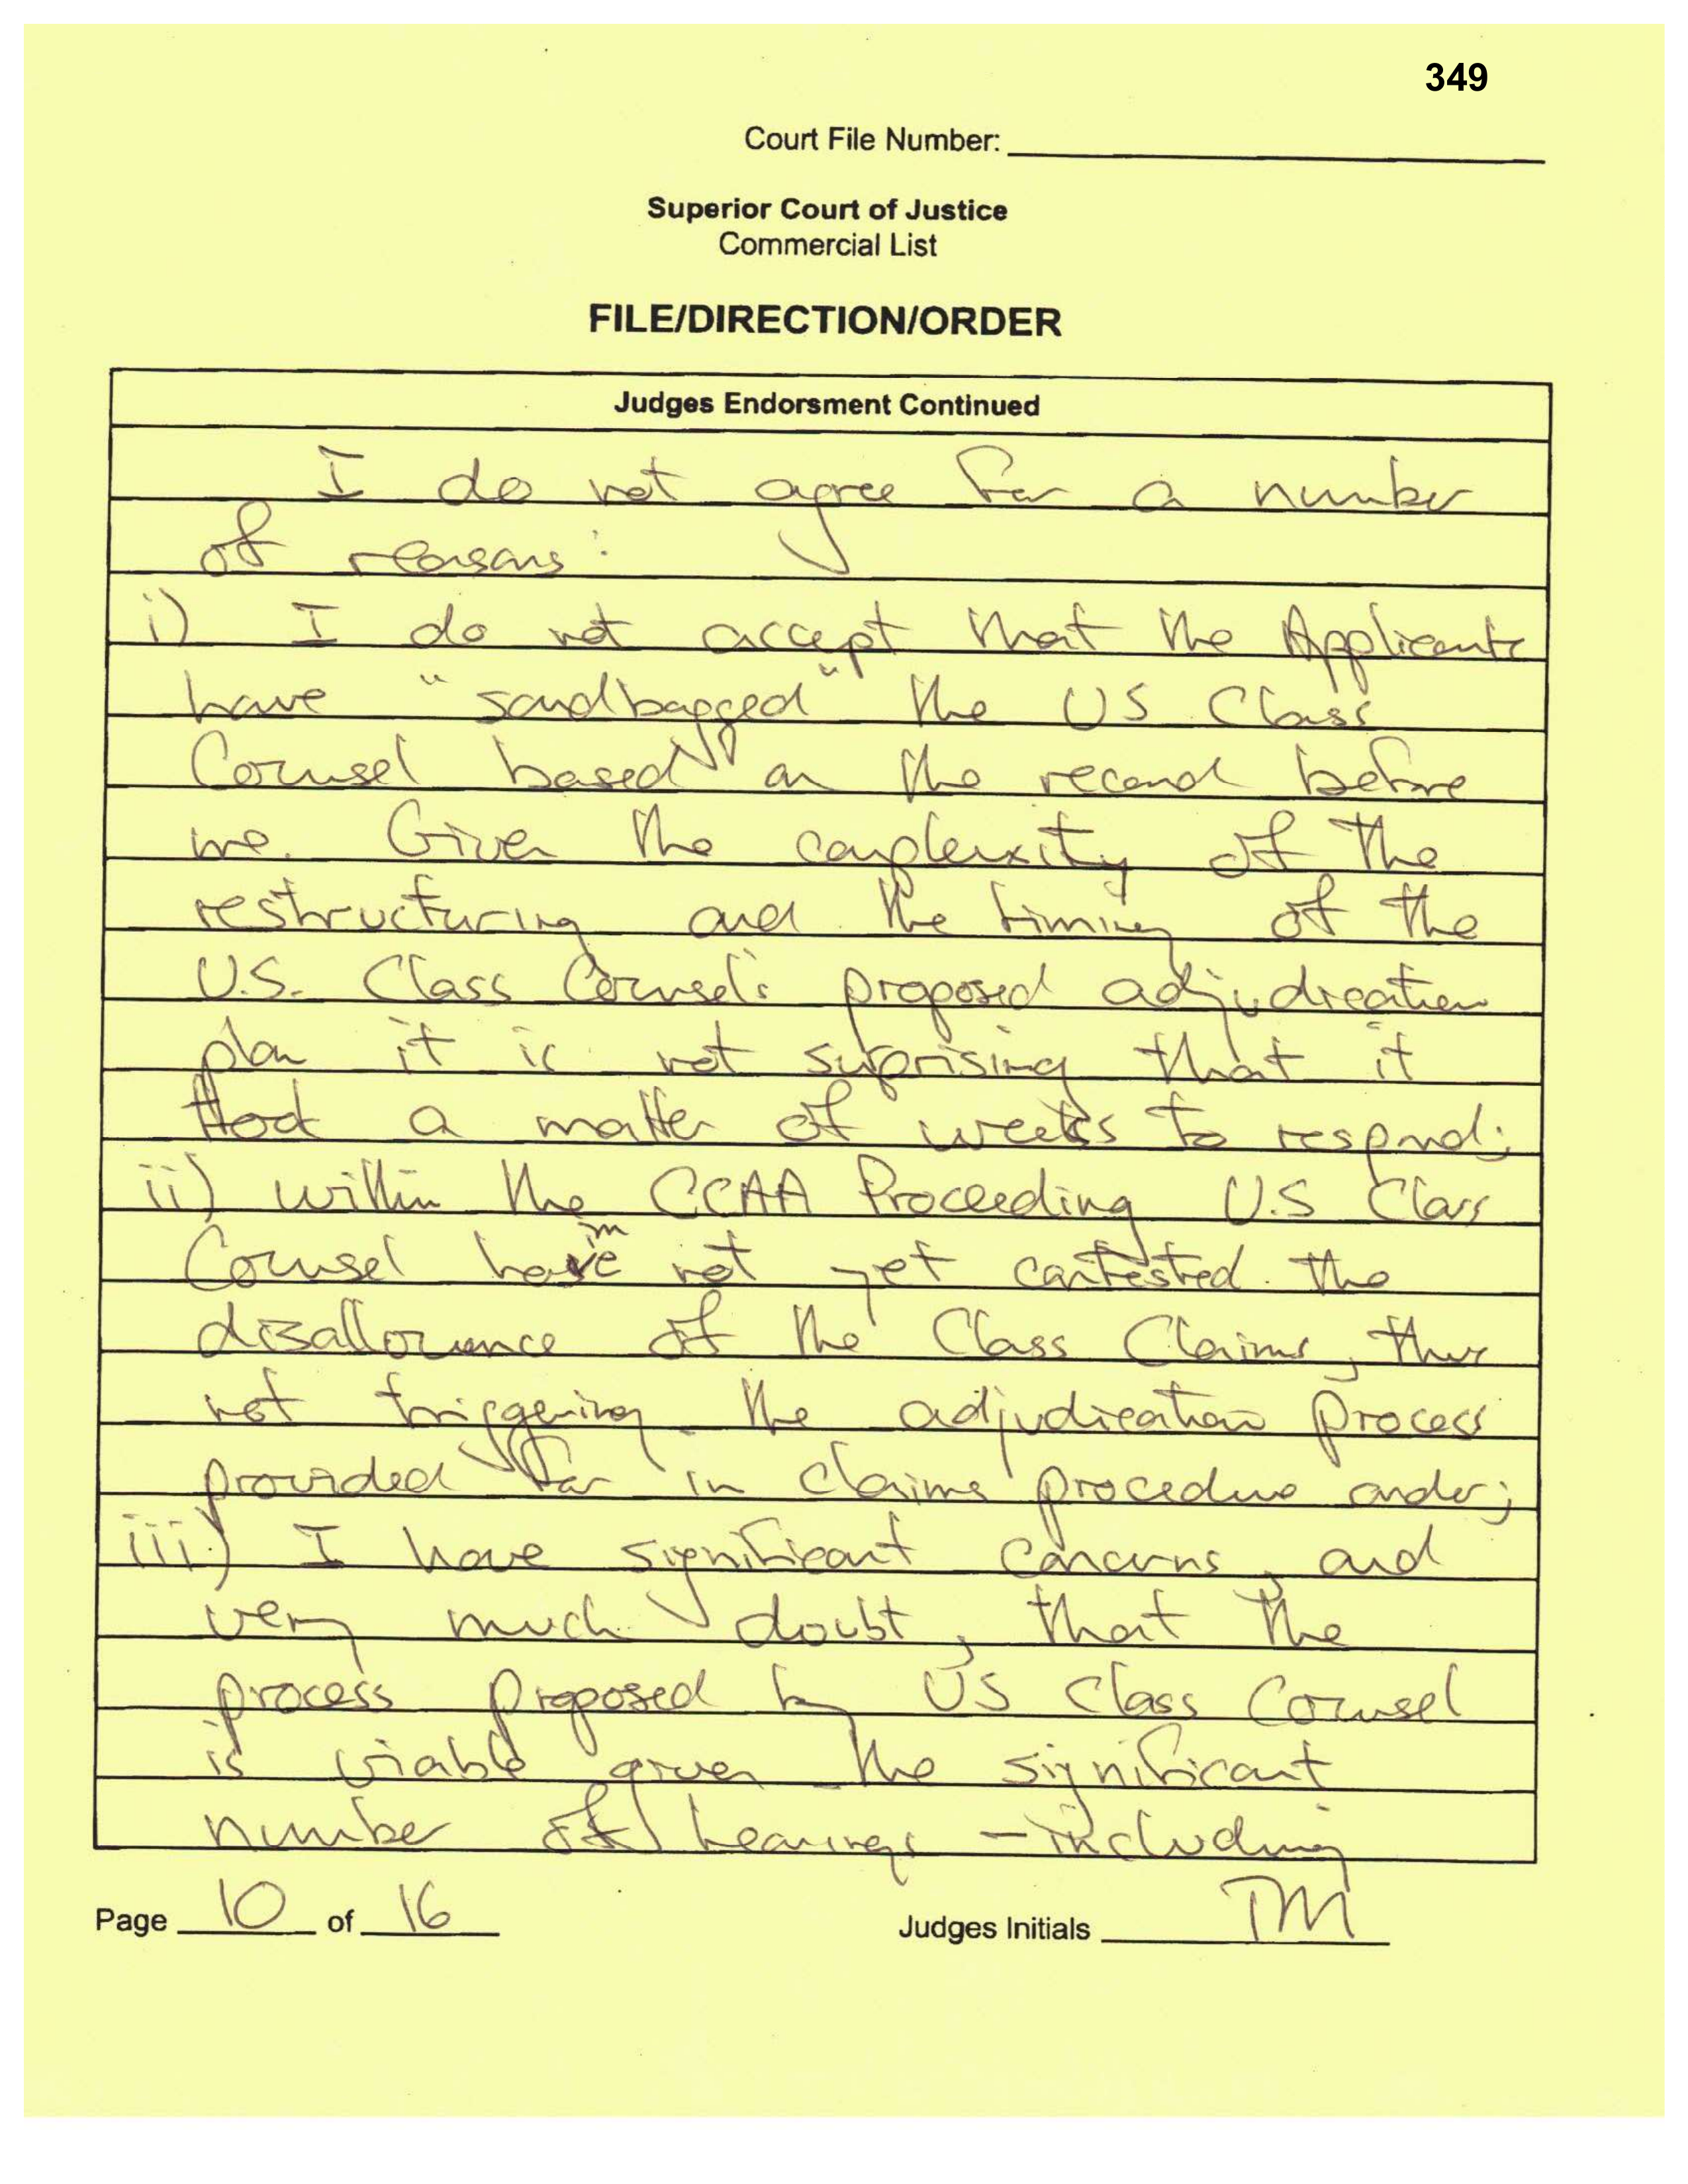 349
Court File Number:
Superior Court of Justice
Commercial List
FILE/DIRECTION/ORDER
Judges Endorsment Continued
I do not agree for a number
of reasons:
i) I do not accept that the Applicants
have "sandbagged" the US Class
Counsel based on the record before
me. Given the complexity of the
restructuring and the timing of the
U.S. Class Counsel's proposed adjudication
plan it is not suprising that it
took a matter of weeks to respond;
ii) within the CCAA Proceeding U.S Class
Counsel have not yet contested the
disallowance of the Class Claims, thus
not triggering the adjudication process
provided for in claims procedure order;
iii) I have significant concerns, and
very much doubt, that the
process proposed by US Class Counsel
is viable given the significant
number of hearings - including
Page 10 of 16
Judges Initials TM